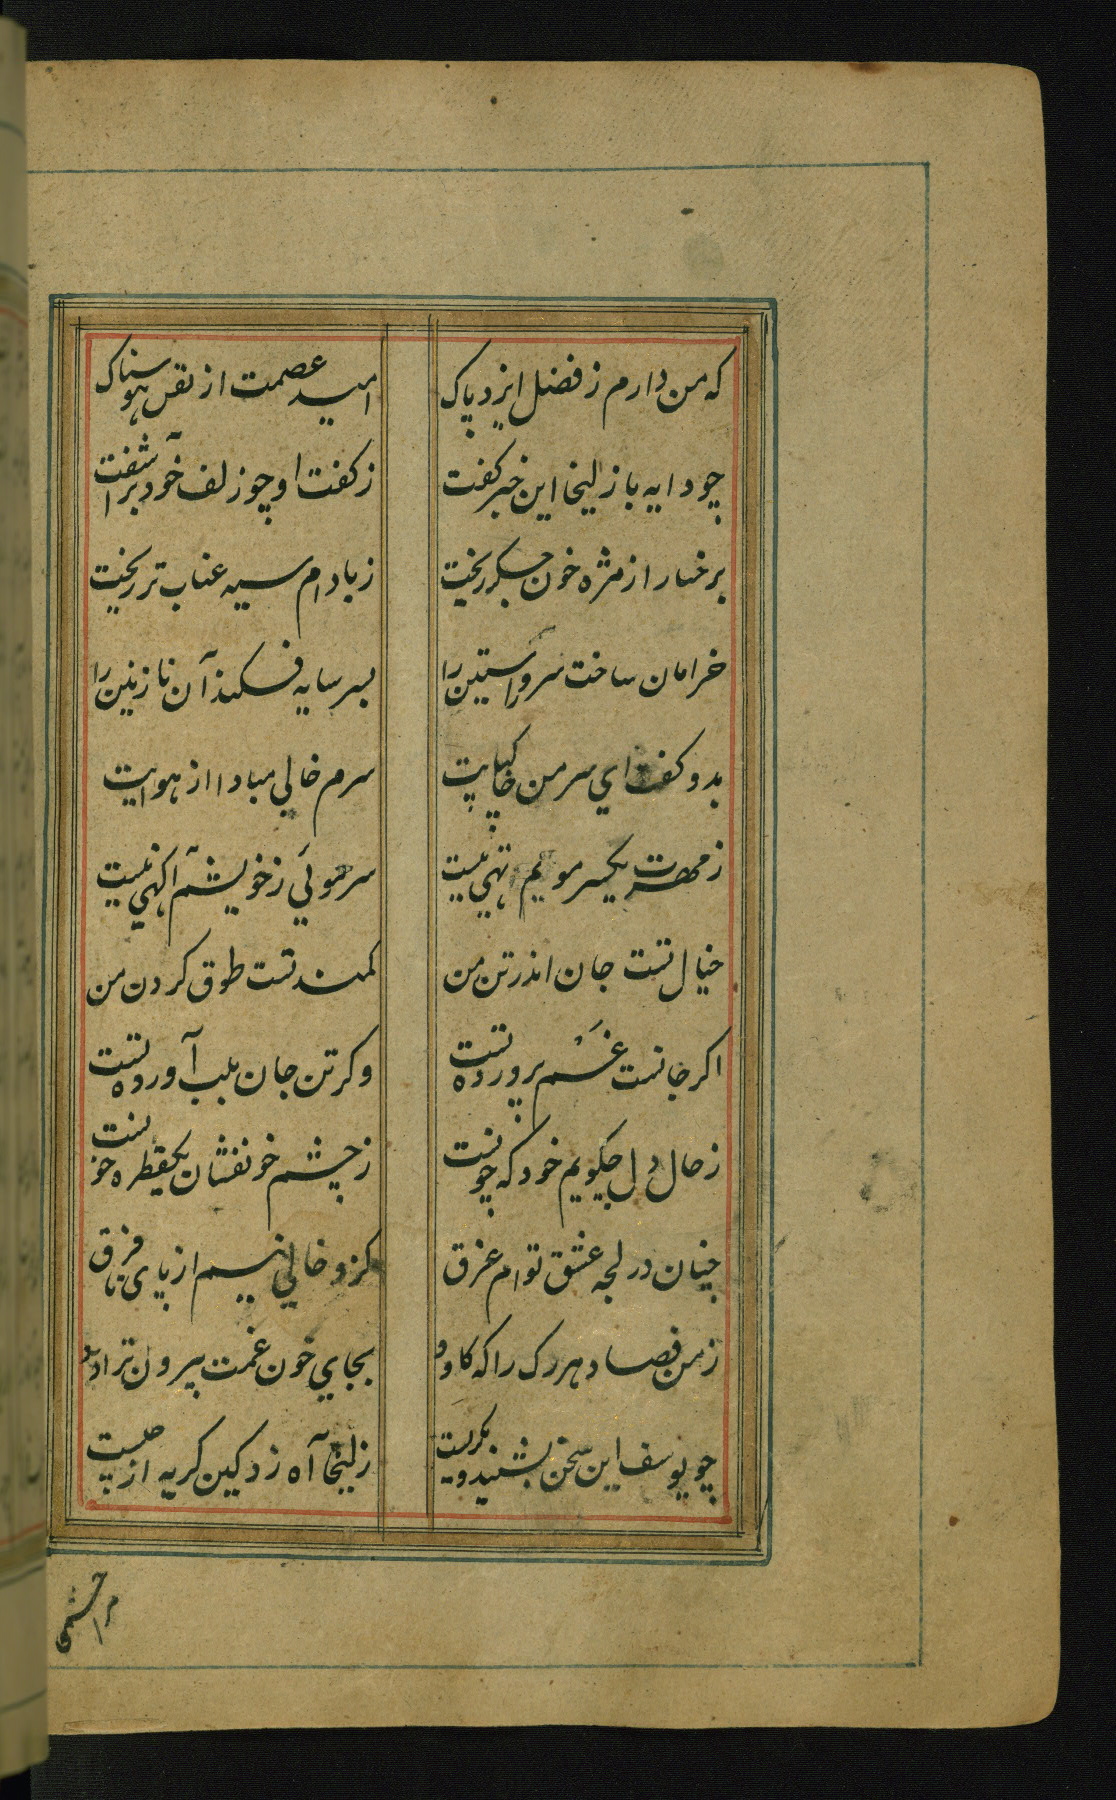 که من دارم ز فضل ایزد پاک امید عصمت از نفس هوسناک
چو دایه با زلیخا این خبر کفت ز کفت او چو زلف خود برآشفت
برخسار از مژه خون جکر ریخت ز بادام سیه عناب تر ریخت
خرامان ساخت سرو راستین را بسر سایه فکند آن نازنین را
بدو کفت ای سر من خاکپایت سرم خالی مبادا از هوایت
ز مهرت یکسر مویم تهی نیست سر مویی ز خویشم آکهی نیست
خیال تست جان اندر تن من کمند تست طوق کردن من
اکر جانست غم پرورده تست وکر تن جان بلب آورده تست
ز حال دل چکویم خود که چونست ز چشم خونفشان یکقطره خونست
چنان در لجه عشق توام غرق کزو خالی نیم از پای تا فرق
ز من فصاد هر رک را که کاود بجای خون غمت بیرون تراود
چو یوسف این سخن بشنید و بکریست زلیخا آه زد کین کریه از چیست
مرا چشمی